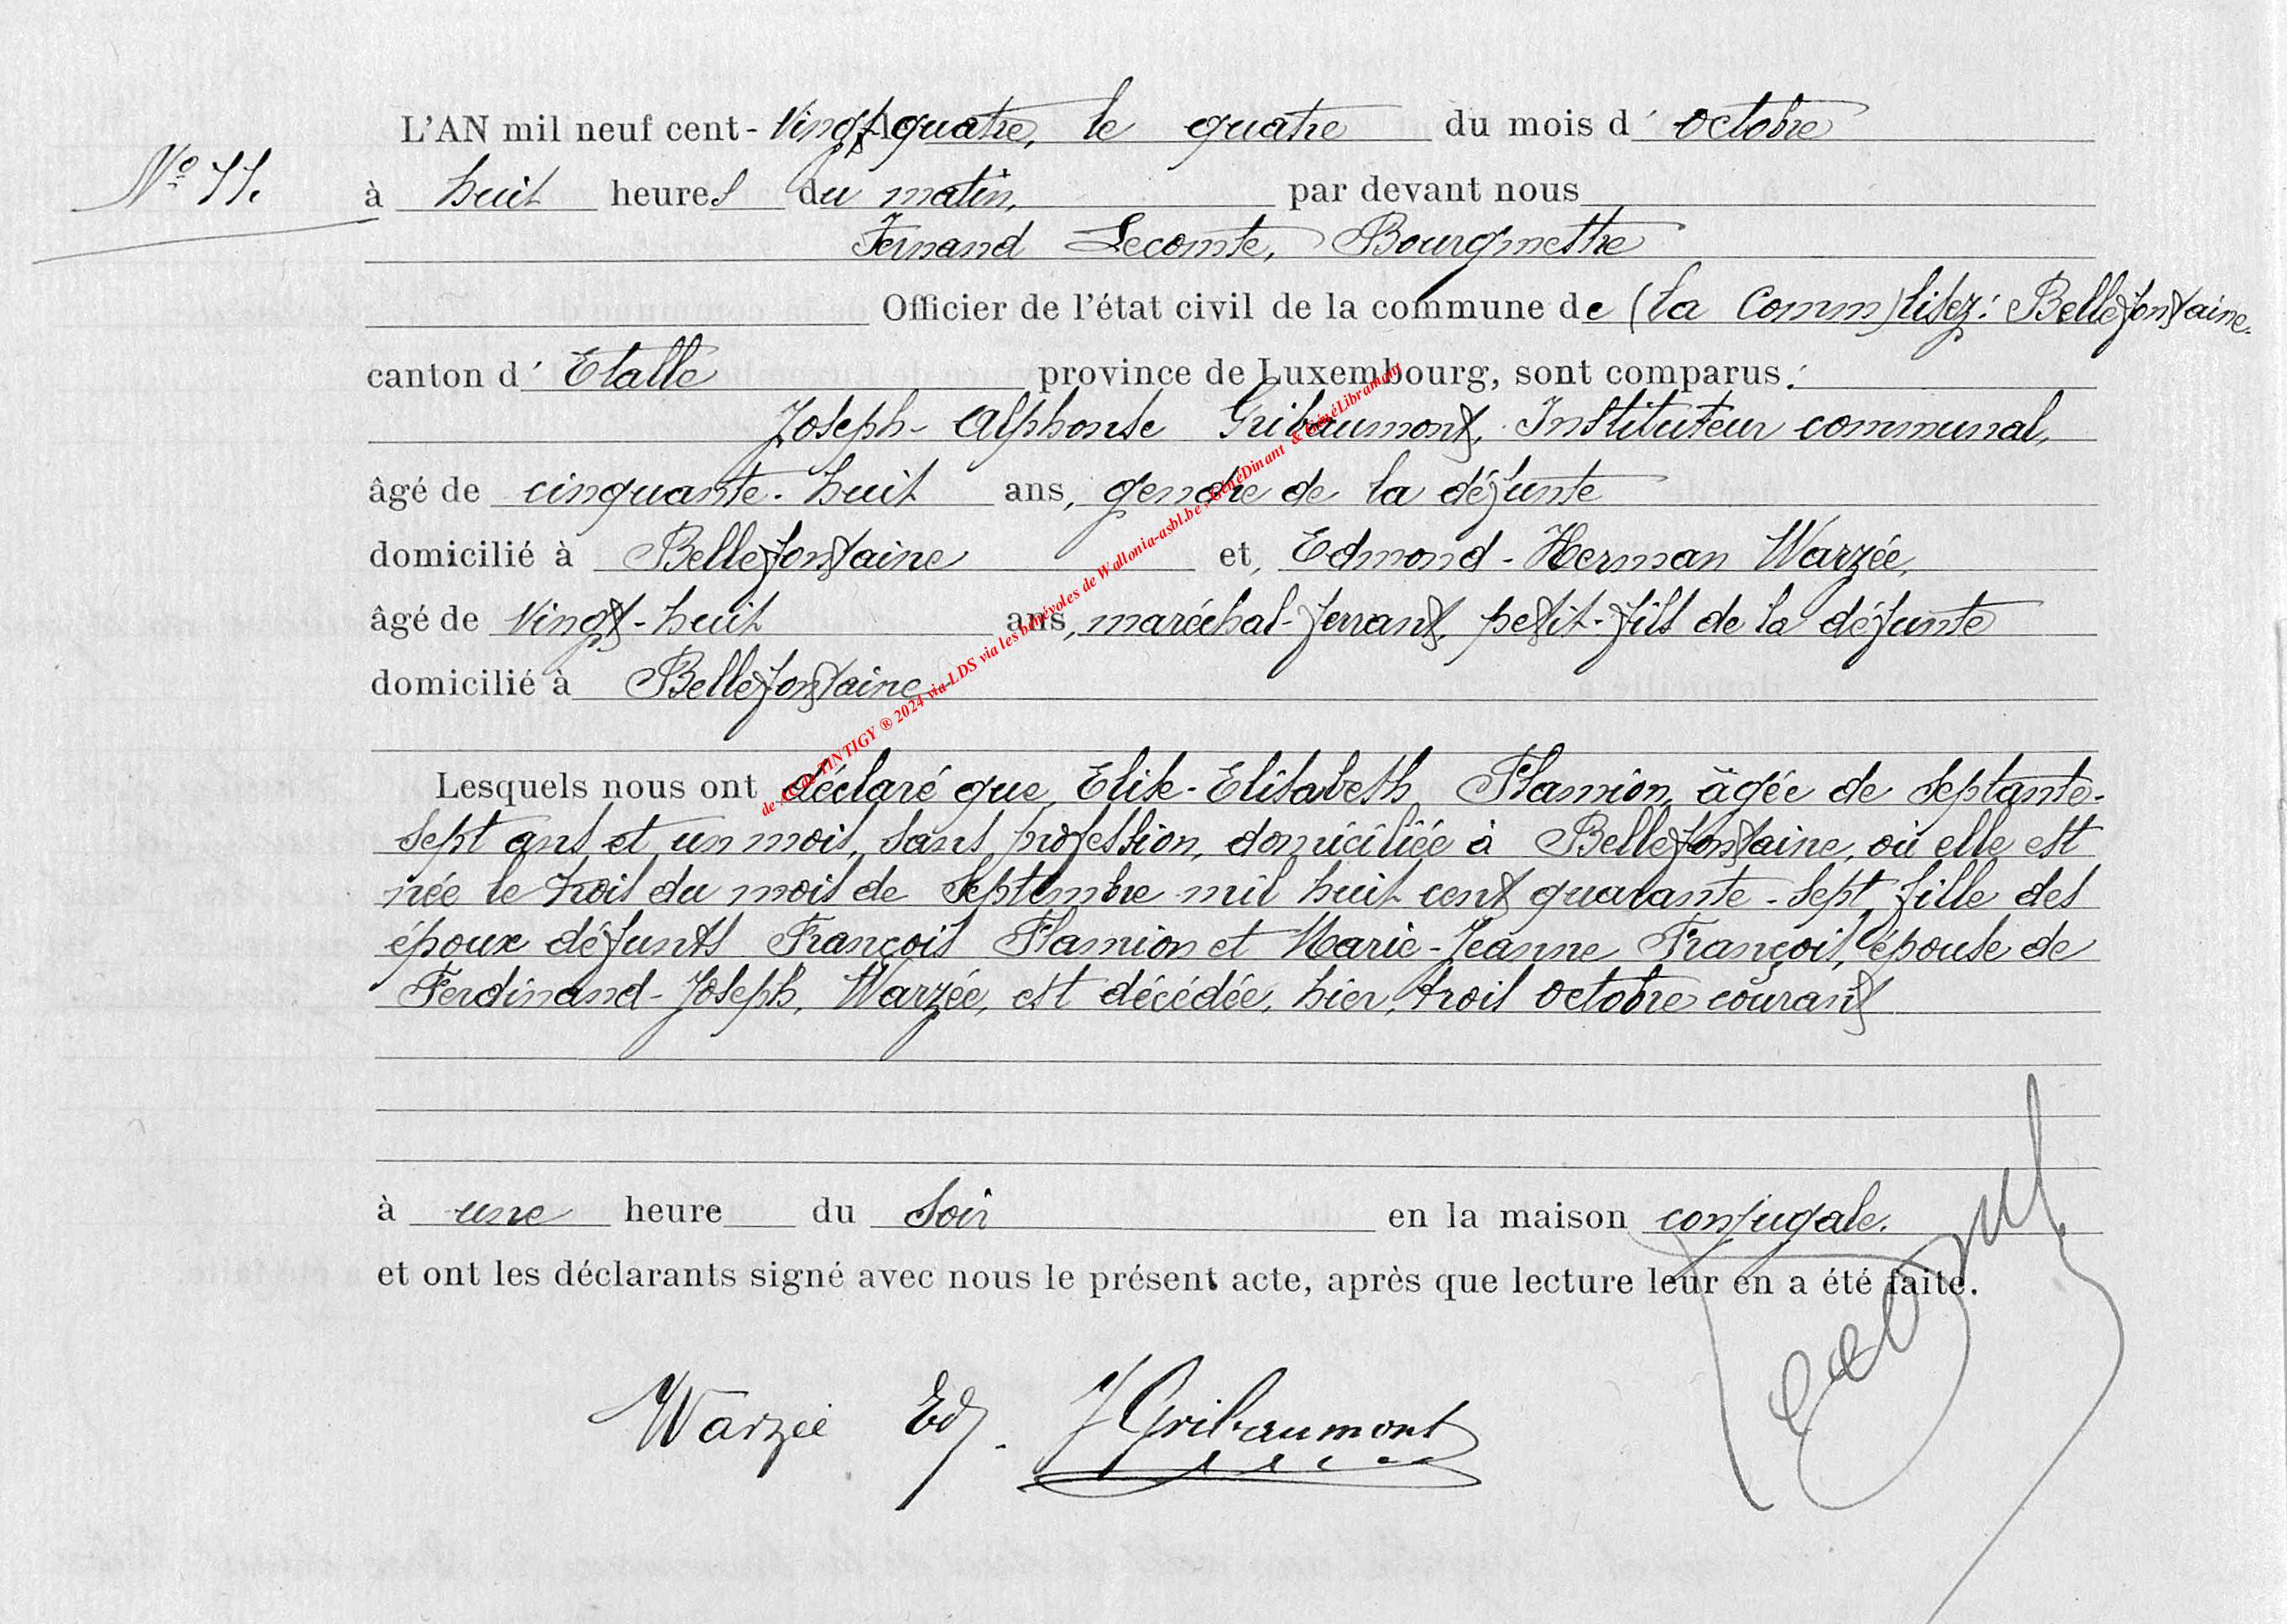 L'AN mil neuf cent - vingt-quatre, le quatre du mois d' octobre
N° 11.
à huit heures du matin, par devant nous
Fernand Lecomte, Bourgmestre
Officier de l'état civil de la commune de (la Comm) lisez: Bellefontaine.
canton d' Etalle province de Luxembourg, sont comparus :
Joseph-Alphonse Gribaumont, Instituteur communal,
âgé de cinquante-huit ans, gendre de la défunte
domicilié à Bellefontaine et, Edmond-Herman Warzée,
âgé de vingt-huit ans, maréchal-ferrant, petit-fils de la défunte
domicilié à Bellefontaine
Lesquels nous ont déclaré que Elise-Elisabeth Flamion, âgée de septante-
sept ans et un mois, sans profession, domiciliée à Bellefontaine, où elle est
née le trois du mois de Septembre mil huit cent quarante-sept, fille des
époux défunts François Flamion et Marie-Jeanne François, épouse de
Ferdinand-Joseph, Warzée, est décédée, hier, trois octobre courant
à une heure du soir en la maison conjugale.
et ont les déclarants signé avec nous le présent acte, après que lecture leur en a été faite.
Warzée Ed. J Gribaumont
TINTIGY ® 2024 via LDS via les bénévoles de Wallonia-asbl.be, GénéDinant & GénéLibramont